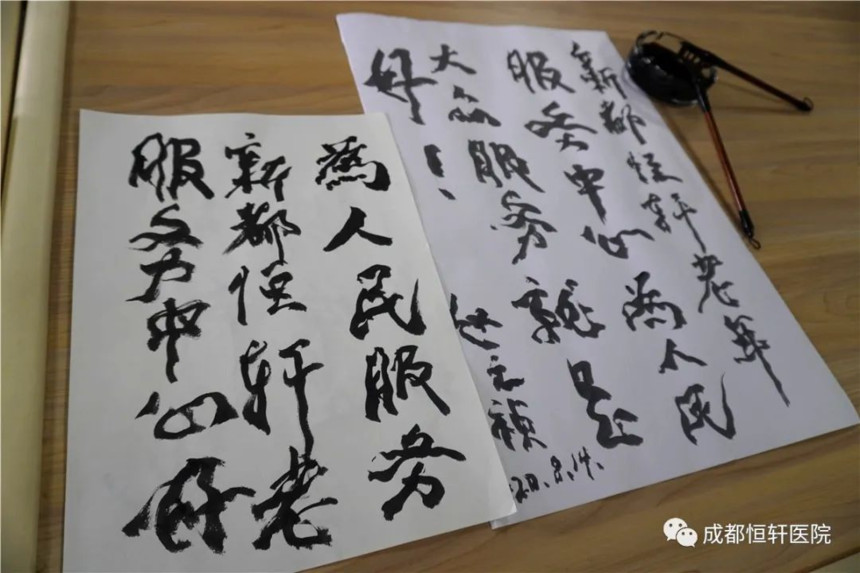 為人民服务
新都恒轩老
服务中心好
新都恒轩老年
服务中心為人民
大服务就是
好！
元祯
20.8.14.
成都恒轩医院